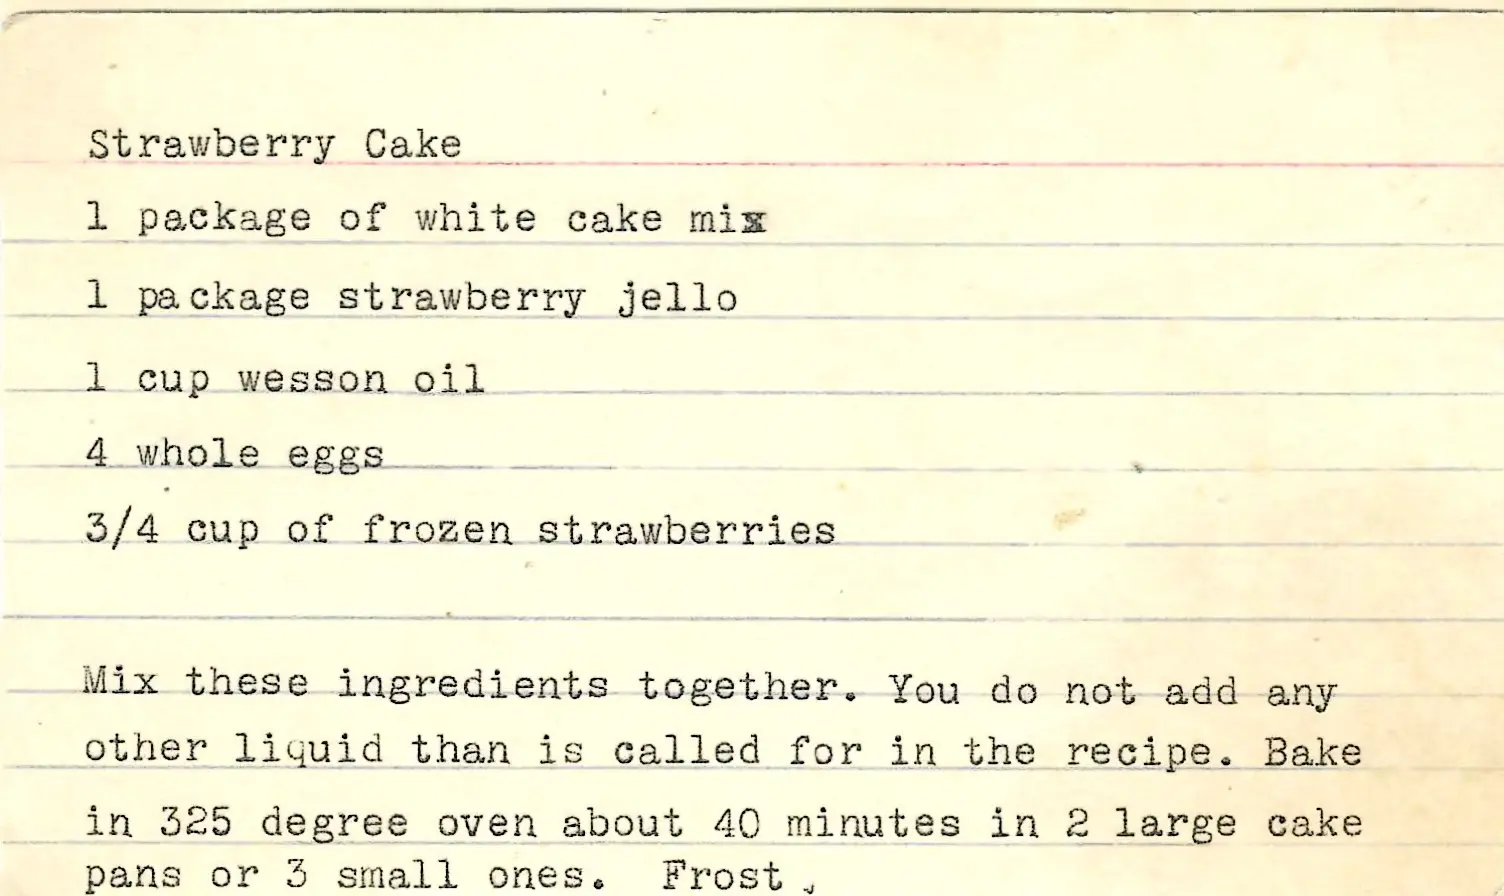 Strawberry Cake
1 package of white cake mix
1 package strawberry jello
1 cup wesson oil
4 whole eggs
3/4 cup of frozen strawberries
Mix these ingredients together. You do not add any
other liquid than is called for in the recipe. Bake
in 325 degree oven about 40 minutes in 2 large cake
pans or 3 small ones. Frost.